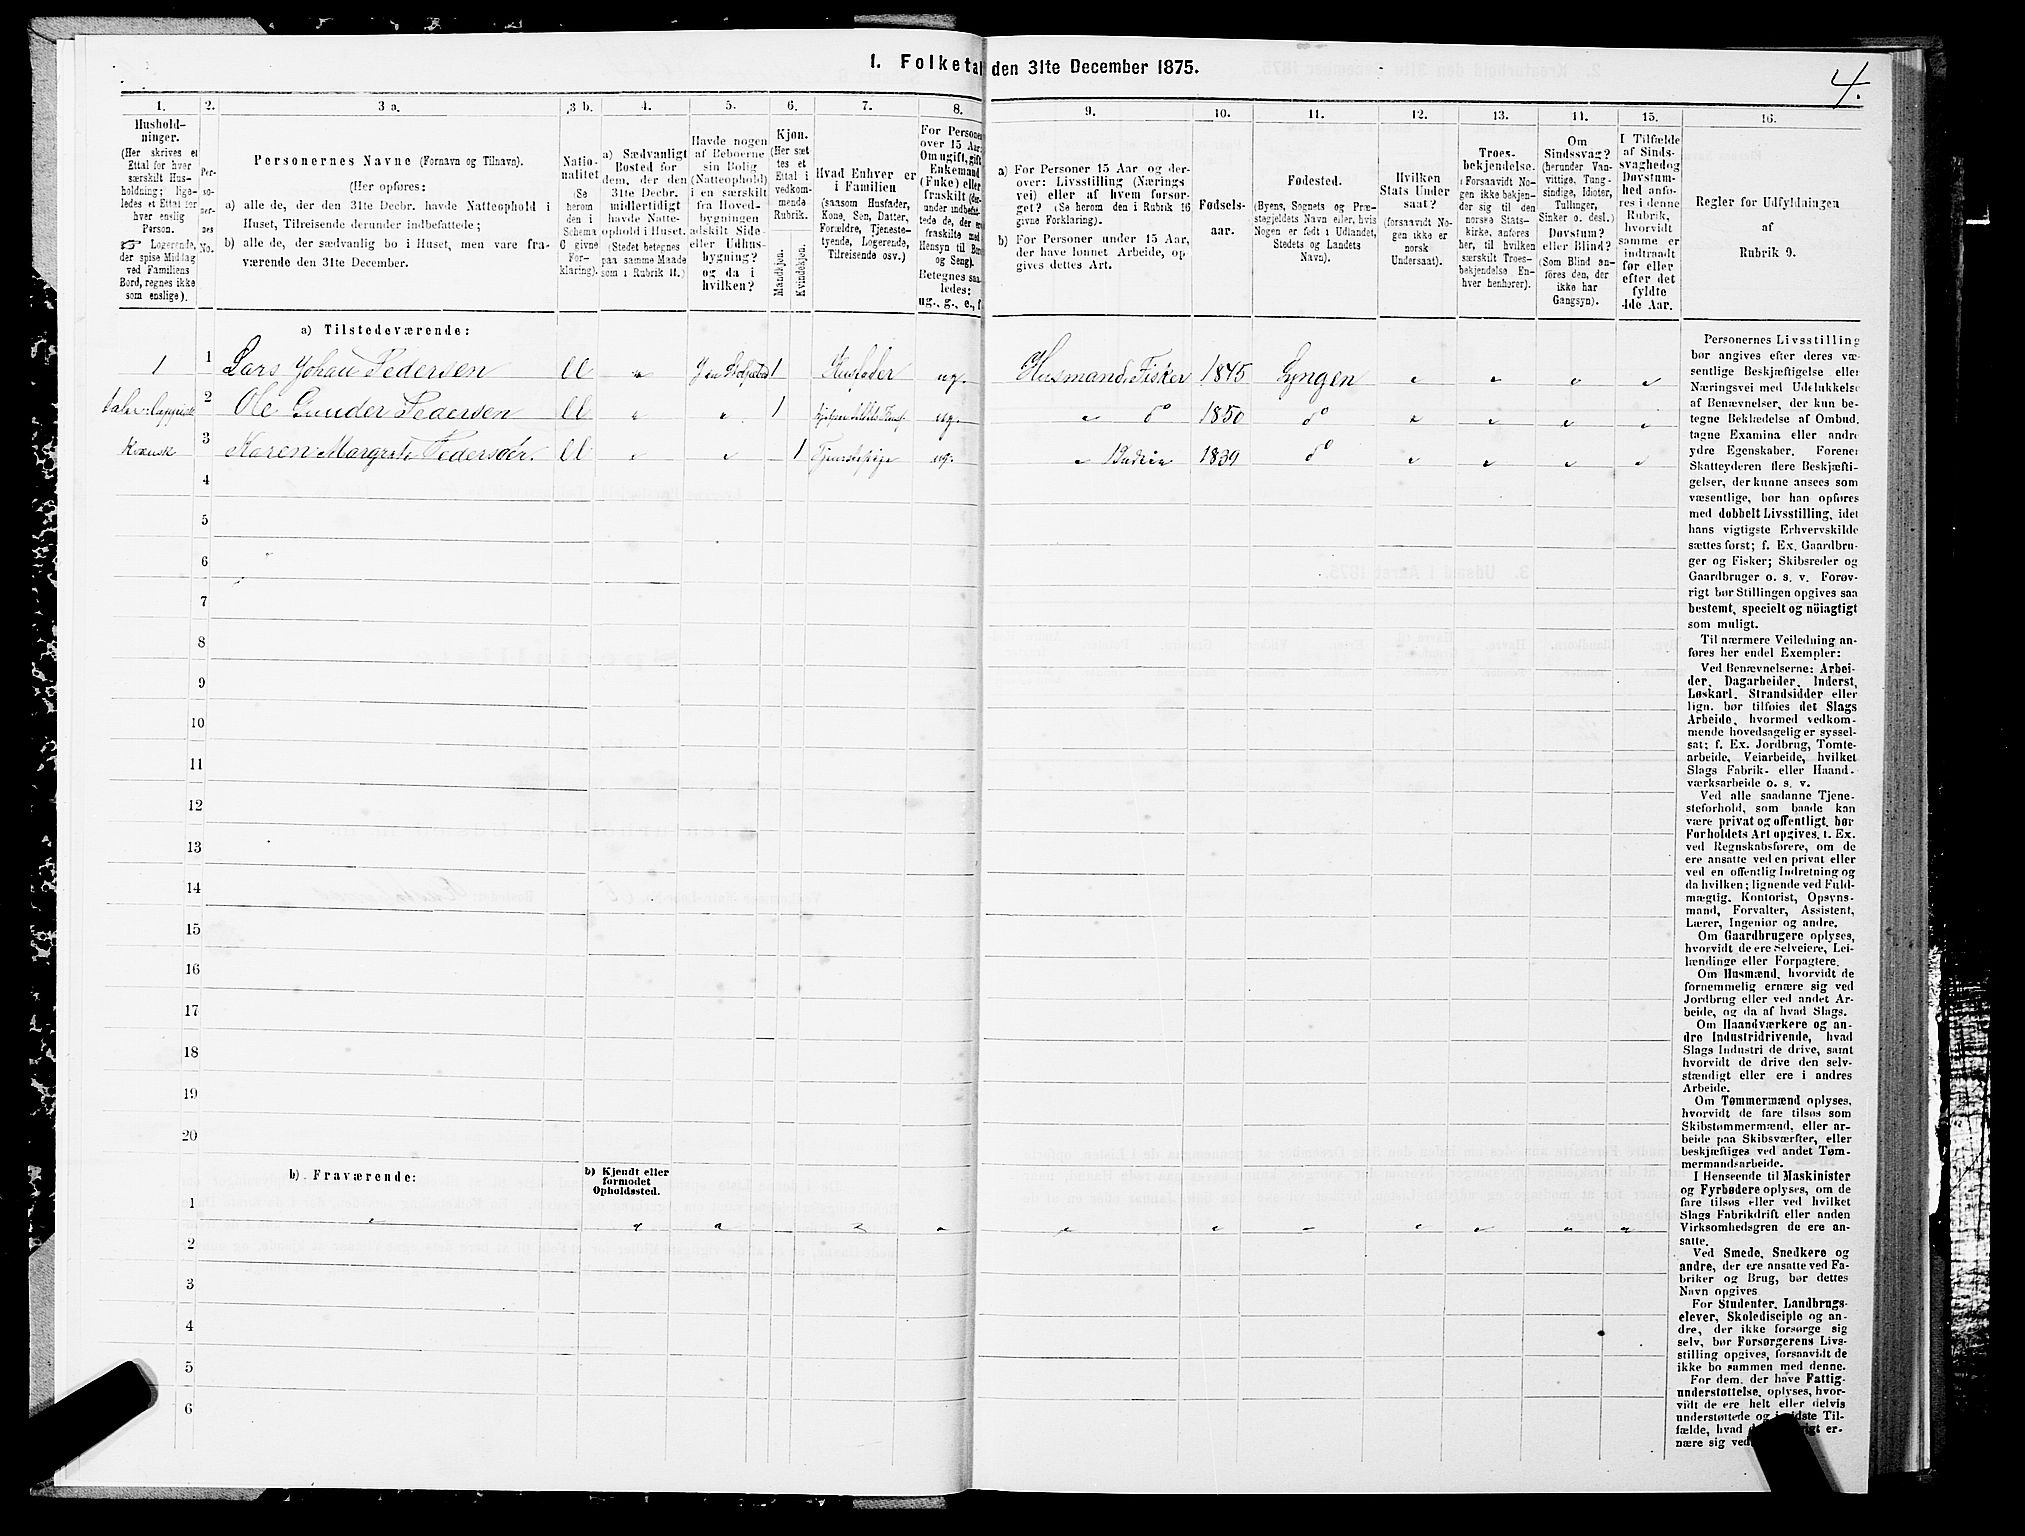 1. Folketal den 31te December 1875.
4.
1.
Hushold-
ninger.
(Her skrives et
Ettal for hver
særskilt Hus-
holdning; lige-
ledes et Ettal for
hver enslig
Person.
☞ Logerende,
der spise Middag
ved Familiens
Bord, regnes ikke
som enslige).
2.
Per-
so-
ner-
nes
No.
3 a.
Personernes Navne (Fornavn og Tilnavn).
(Her opføres:
a) alle de, der den 31te Decbr. havde Natteophold i
Huset, Tilreisende derunder indbefattede;
b) alle de, der sædvanlig bo i Huset, men vare fra-
værende den 31te December.
3 b.
Natio-
nalitet
(Se
herom
den i
Schema
C givne
For-
klaring).
4.
a) Sædvanligt
Bosted for
dem, der den
31te Decbr.
midlertidigt
havde Natte-
ophold i Huset.
(Stedet betegnes
paa samme Maade
som i Rubrik 11.)
5.
Havde nogen
af Beboerne
sin Bolig
(Natteophold)
i en særskilt
fra Hoved-
bygningen
adskilt Side-
eller Udhus-
bygning?
og da i
hvilken?
6.
Kjøn.
(Her sæt
tes et
Ettal i
vedkom-
mende
Rubrik.
Mandkjøn.
Kvindekjøn.
7.
Hvad Enhver er
i Familien
(saasom Husfader,
Kone, Søn, Datter,
Forældre, Tjeneste-
tyende, Logerende,
Tilreisende osv.)
8.
For Personer
over 15 Aar:
Om ugift, gift,
Enkemand
(Enke) eller
fraskilt (der-
under indbefat-
tede de, der ere
fraskilte med
Hensyn til Bord
og Seng).
Betegnes saa-
ledes:
ug., g., e., f.
9.
a) For Personer 15 Aar og der-
over: Livsstilling (Nærings
vei) eller af hvem forsør-
get? (Se herom den i Rubrik 16
givne Forklaring).
b) For Personer under 15 Aar,
der have lønnet Arbeide, op
gives dettes Art.
10.
Fødsels-
aar.
11.
Fødested.
(Byens, Sognets og Præ-
stegjeldets Navn eller, hvis
Nogen er født i Udlandet,
Stedets og Landets
Navn).
12.
Hvilken
Stats Under
saat?
(forsaavidt No-
gen ikke er
norsk
Undersaat).
13.
Troes-
bekjendelse.
(Forsaavidt No-
gen ikke bekjen-
der sig til den
norske Stats-
kirke, anføres
her, til hvilken
særskilt Troes-
bekjendelse En-
hver henhører).
14.
Om
Sindssvag?
(herunder Van-
vittige, Tung-
sindige, Idioter,
Tullinger,
Sinker o. desl.)
Døvstum?
eller Blind?
(Som Blind an-
føres den, der
ikke har
Gangsyn).
15.
I Tilfælde
af Sinds-
svaghed og
Døvstum-
hed anfø-
res i denne
Rubrik,
hvorvidt
samme er
indtraadt
før eller
efter det
fyldte
4de Aar.
16.
Regler for Udfyldningen
af
Rubrik 9.
a) Tilstedeværende:
1 1 Lars Johan Pedersen 1 Husfader ug. Husmand, Fisker 1845 Lyngen
2 Ole Gunder Pedersen 1 ug. do 1850 do
Kvænsk 3 Karen Margrete Pedersdr. 1 Tjenestepige ug. Budeie 1839 do
4
5
6
7
8
9
10
11
12
13
14
15
16
17
18
19
20
b) Fraværende:
b) Kjendt eller
formodet
Opholdssted.
1
2
3
4
5
6
Personernes Livsstilling
bør angives efter deres væ-
sentlige Beskjæftigelse eller
Næringsvei med Udelukkelse
af Benævnelser, der kun be-
tegne Beklædelse af Ombud,
tagne Examina eller andre
ydre Egenskaber. Forener
Skatteyderen flere Beskjæfti-
gelser, der kunne ansees som
væsentlige, bør han opføres
med dobbelt Livsstilling, idet
hans vigtigste Erhvervskilde
sættes først; f. Ex. Gaardbru-
ger og Fisker; Skibsreder og
Gaardbruger o. s. v. Forøv-
rigt bør Stillingen opgives saa
bestemt, specielt og nöiagtigt
som muligt.
Til nærmere Veiledning an-
føres her endel Exempler:
Ved Benævnelserne: Arbei-
der, Dagarbeider, Inderst,
Løskarl, Strandsidder eller
lign. bør tilføies det Slags
Arbeide, hvormed vedkom-
mende hovedsagelig er syssel-
sat; f. Ex. Jordbrug, Tomte-
arbeide, Veiarbeide, hvilket
Slags Fabrik- eller Haand-
værksarbeide o. s. v.
Ved alle saadanne Tjene-
steforhold, som baade kan
være privat og offentligt, bør
Forholdets Art opgives, f. Ex.
ved Regnskabsførere, om de
ere ansatte ved en privat eller
ved en offentlig Indretning og
da hvilken; lignende ved Fuld-
mægtig, Kontorist, Opsyns-
mand, Forvalter, Assistent,
Lærer, Ingeniør og andre.
Om Gaardbrugere oplyses,
hvorvidt de ere Selveiere, Lei-
lændinge eller Forpagtere.
Om Husmænd, hvorvidt de
fornemmelig ernære sig ved
Jordbrug eller ved andet Ar-
beide, og da af hvad Slags.
Om Haandværkere og an-
dre Industridrivende, hvad
Slags Industri de drive, samt
hvorvidt de drive den selv-
stændigt eller ere i andres
Arbeide.
Om Tømmermænd oplyses,
hvorvidt de fare tilsøs som
Skibstømmermænd, eller ar-
beide paa Skibsværfter, eller
beskjæftiges ved andet Tøm-
mermandsarbeide.
I Henseende til Maskinister
og Fyrbødere oplyses, om de
fare tilsøs eller ved hvilket
Slags Fabrikdrift eller anden
Virksomhedsgren de ere an-
satte.
Ved Smede, Snedkere og
andre, der ere ansatte ved Fa-
briker og Brug, bør dettes
Navn opgives
For Studenter, Landbrugs-
elever, Skoledisciple og an-
dre, der ikke forsørge sig
selv, bør Forsørgerens Livs-
stilling opgives, forsaavidt de
ikke bo sammen med denne.
For dem, der have Fattig-
understøttelse, oplyses, hvor-
vidt de ere helt eller delvis
understøttede og i sidste Til-
fælde, hvad de ellers er-
nære sig ved